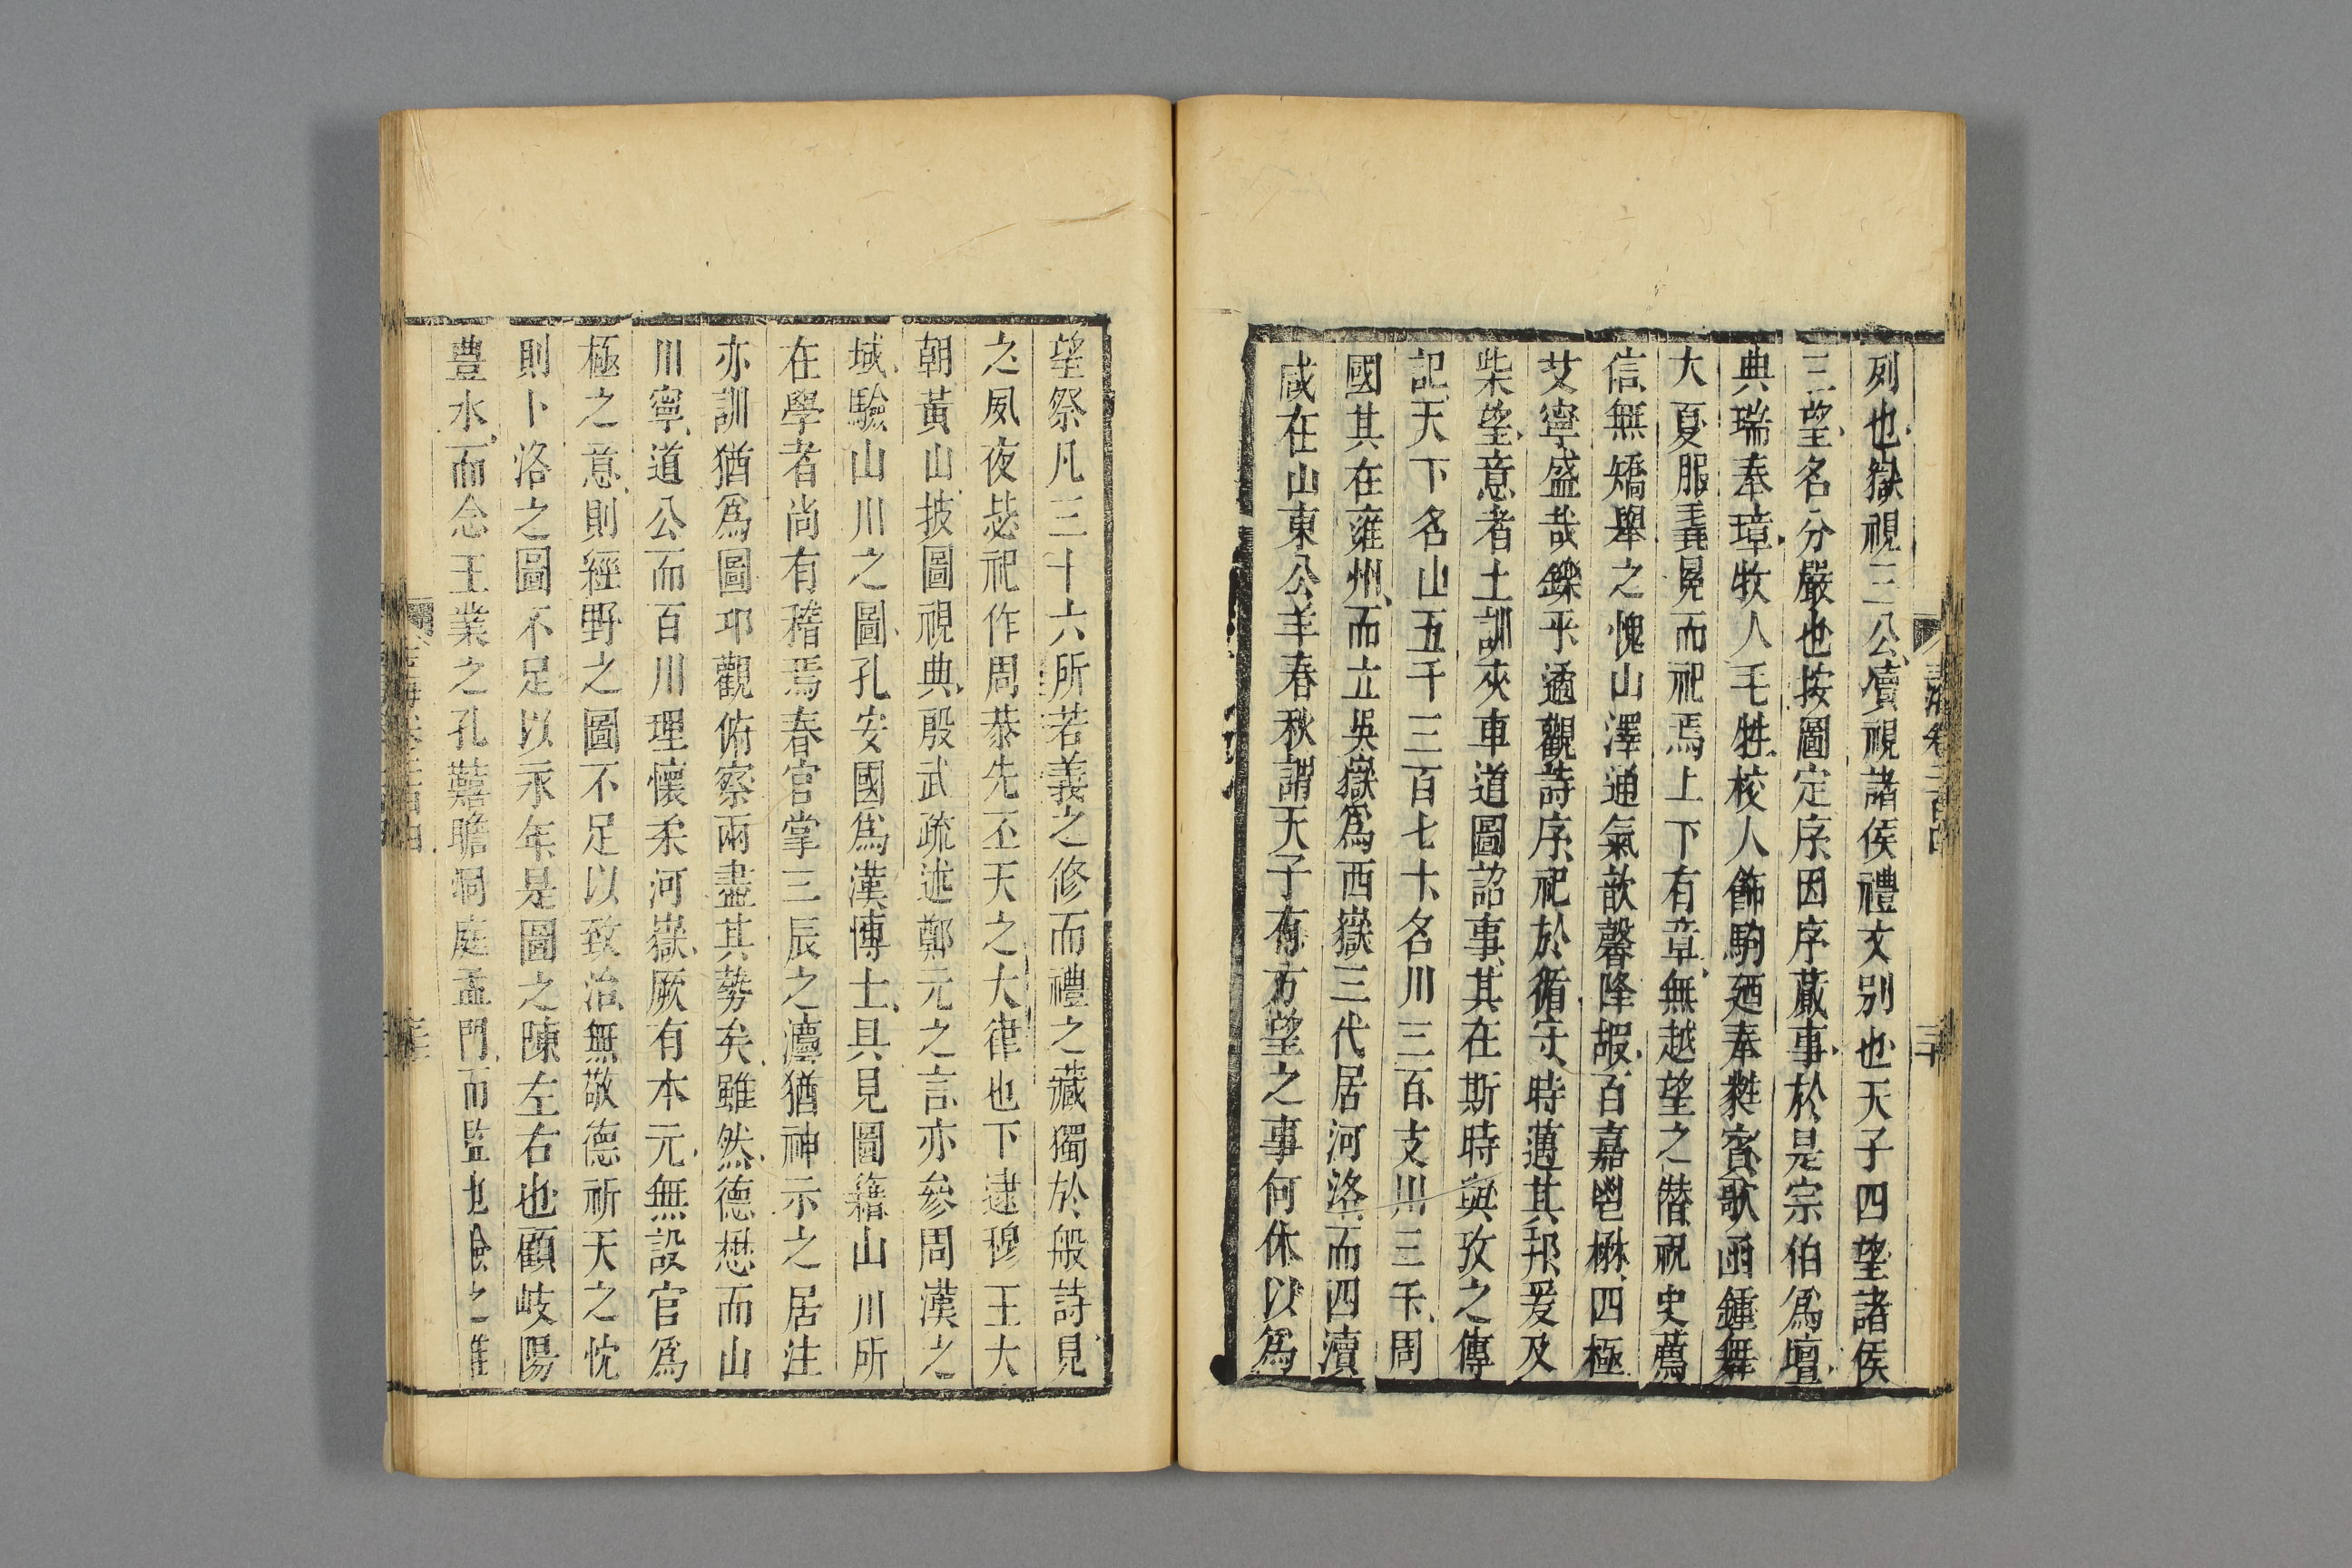 列也嶽視三公瀆視諸侯禮文别也天子四望諸侯
三望名分嚴也按圖定序因序蕆事於是宗伯爲壇
典瑞奉璋牧人毛牲校人飾駒廼奉犧賓歌函鍾舞
大夏服毳冕而祀焉上下有章無越望之僣祝史薦
信無矯舉之愧山澤通氣歆馨降嘏百嘉鬯楙四極
艾寧盛哉鑠乎遹觀詩序祀於循守時邁其邦爰及
柴望意者土訓夾車道圖詔事其在斯時與攷之傳
記天下名山五千三百七十名川三百支川三千周
國其在雍州而立吳嶽爲西嶽三代居河洛而四瀆
咸在山東公羊春秋謂天子有方望之事何休以爲
望祭凡三十六所若義之修而禮之藏獨於般詩見
之夙夜毖祀作周恭先丕天之大律也下逮穆王大
朝黃山披圖視典殷武疏述鄭元之言亦參周漢之
域驗山川之圖孔安國爲漢博士具見圖籍山川所
在學者尚有稽焉春官掌三辰之灋猶神示之居注
亦訓猶爲圖卭觀俯察兩盡其勢矣雖然德懋而山
川寧道公而百川理懷柔河嶽厥有本元無設官爲
極之意則經野之圖不足以致治無敬德祈天之忱
則卜洛之圖不足以永年是圖之陳左右也顧岐陽
豊水而念王業之孔囏瞻洞庭孟門而監也險之難